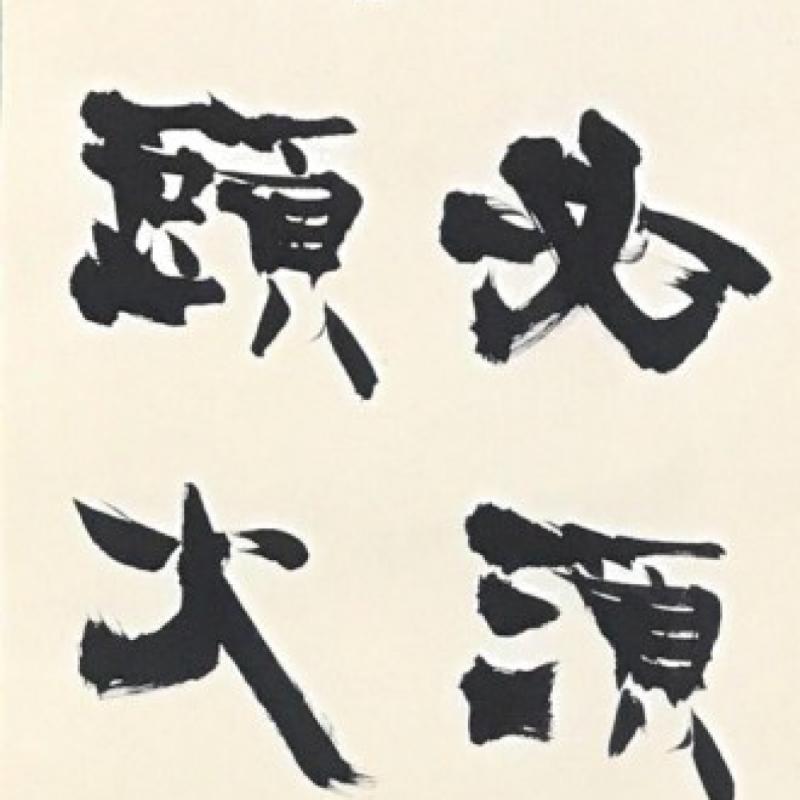 必須
頭火